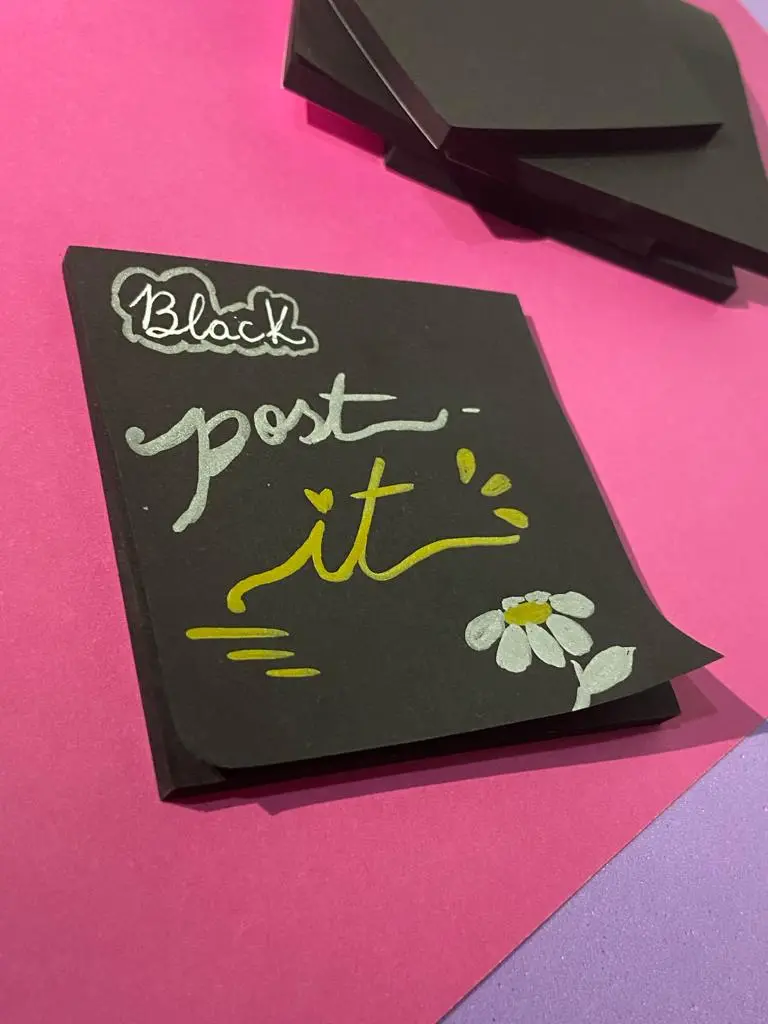 Black
post-
it